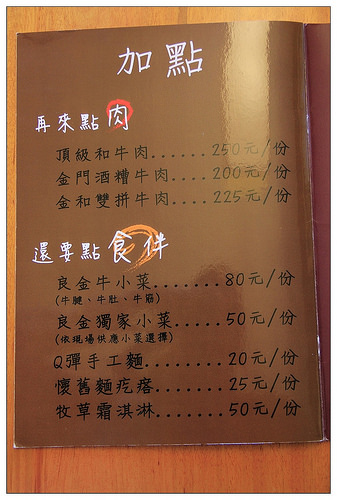 加點
再來點肉
頂級和牛肉.......250元/份
金門酒糟牛肉....200元/份
金和雙拼牛肉....225元/份
還要點食伴
良金牛小菜.......80元/份
(牛腱、牛肚、牛筋)
良金獨家小菜.....50元/份
(依現場供應小菜選擇)
Q彈手工麵........20元/份
懷舊麵疙瘩.......25元/份
牧草霜淇淋.......50元/份